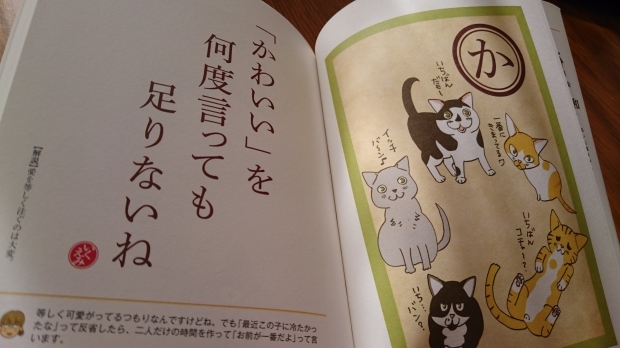 「かわいい」を
何度言っても
足りないね
【解説】愛を等しく注ぐのは大変。
等しく可愛がってるつもりなんですけどね。でも「最近この子に冷たかっ
たな」って反省したら、二人だけの時間を作って「お前が一番だよ」って言
います。
か
いちばん
だモ〜
一番に
きまってるワ
イッチ
バーン♪
いちばん
コチャー?
いち…
バン?